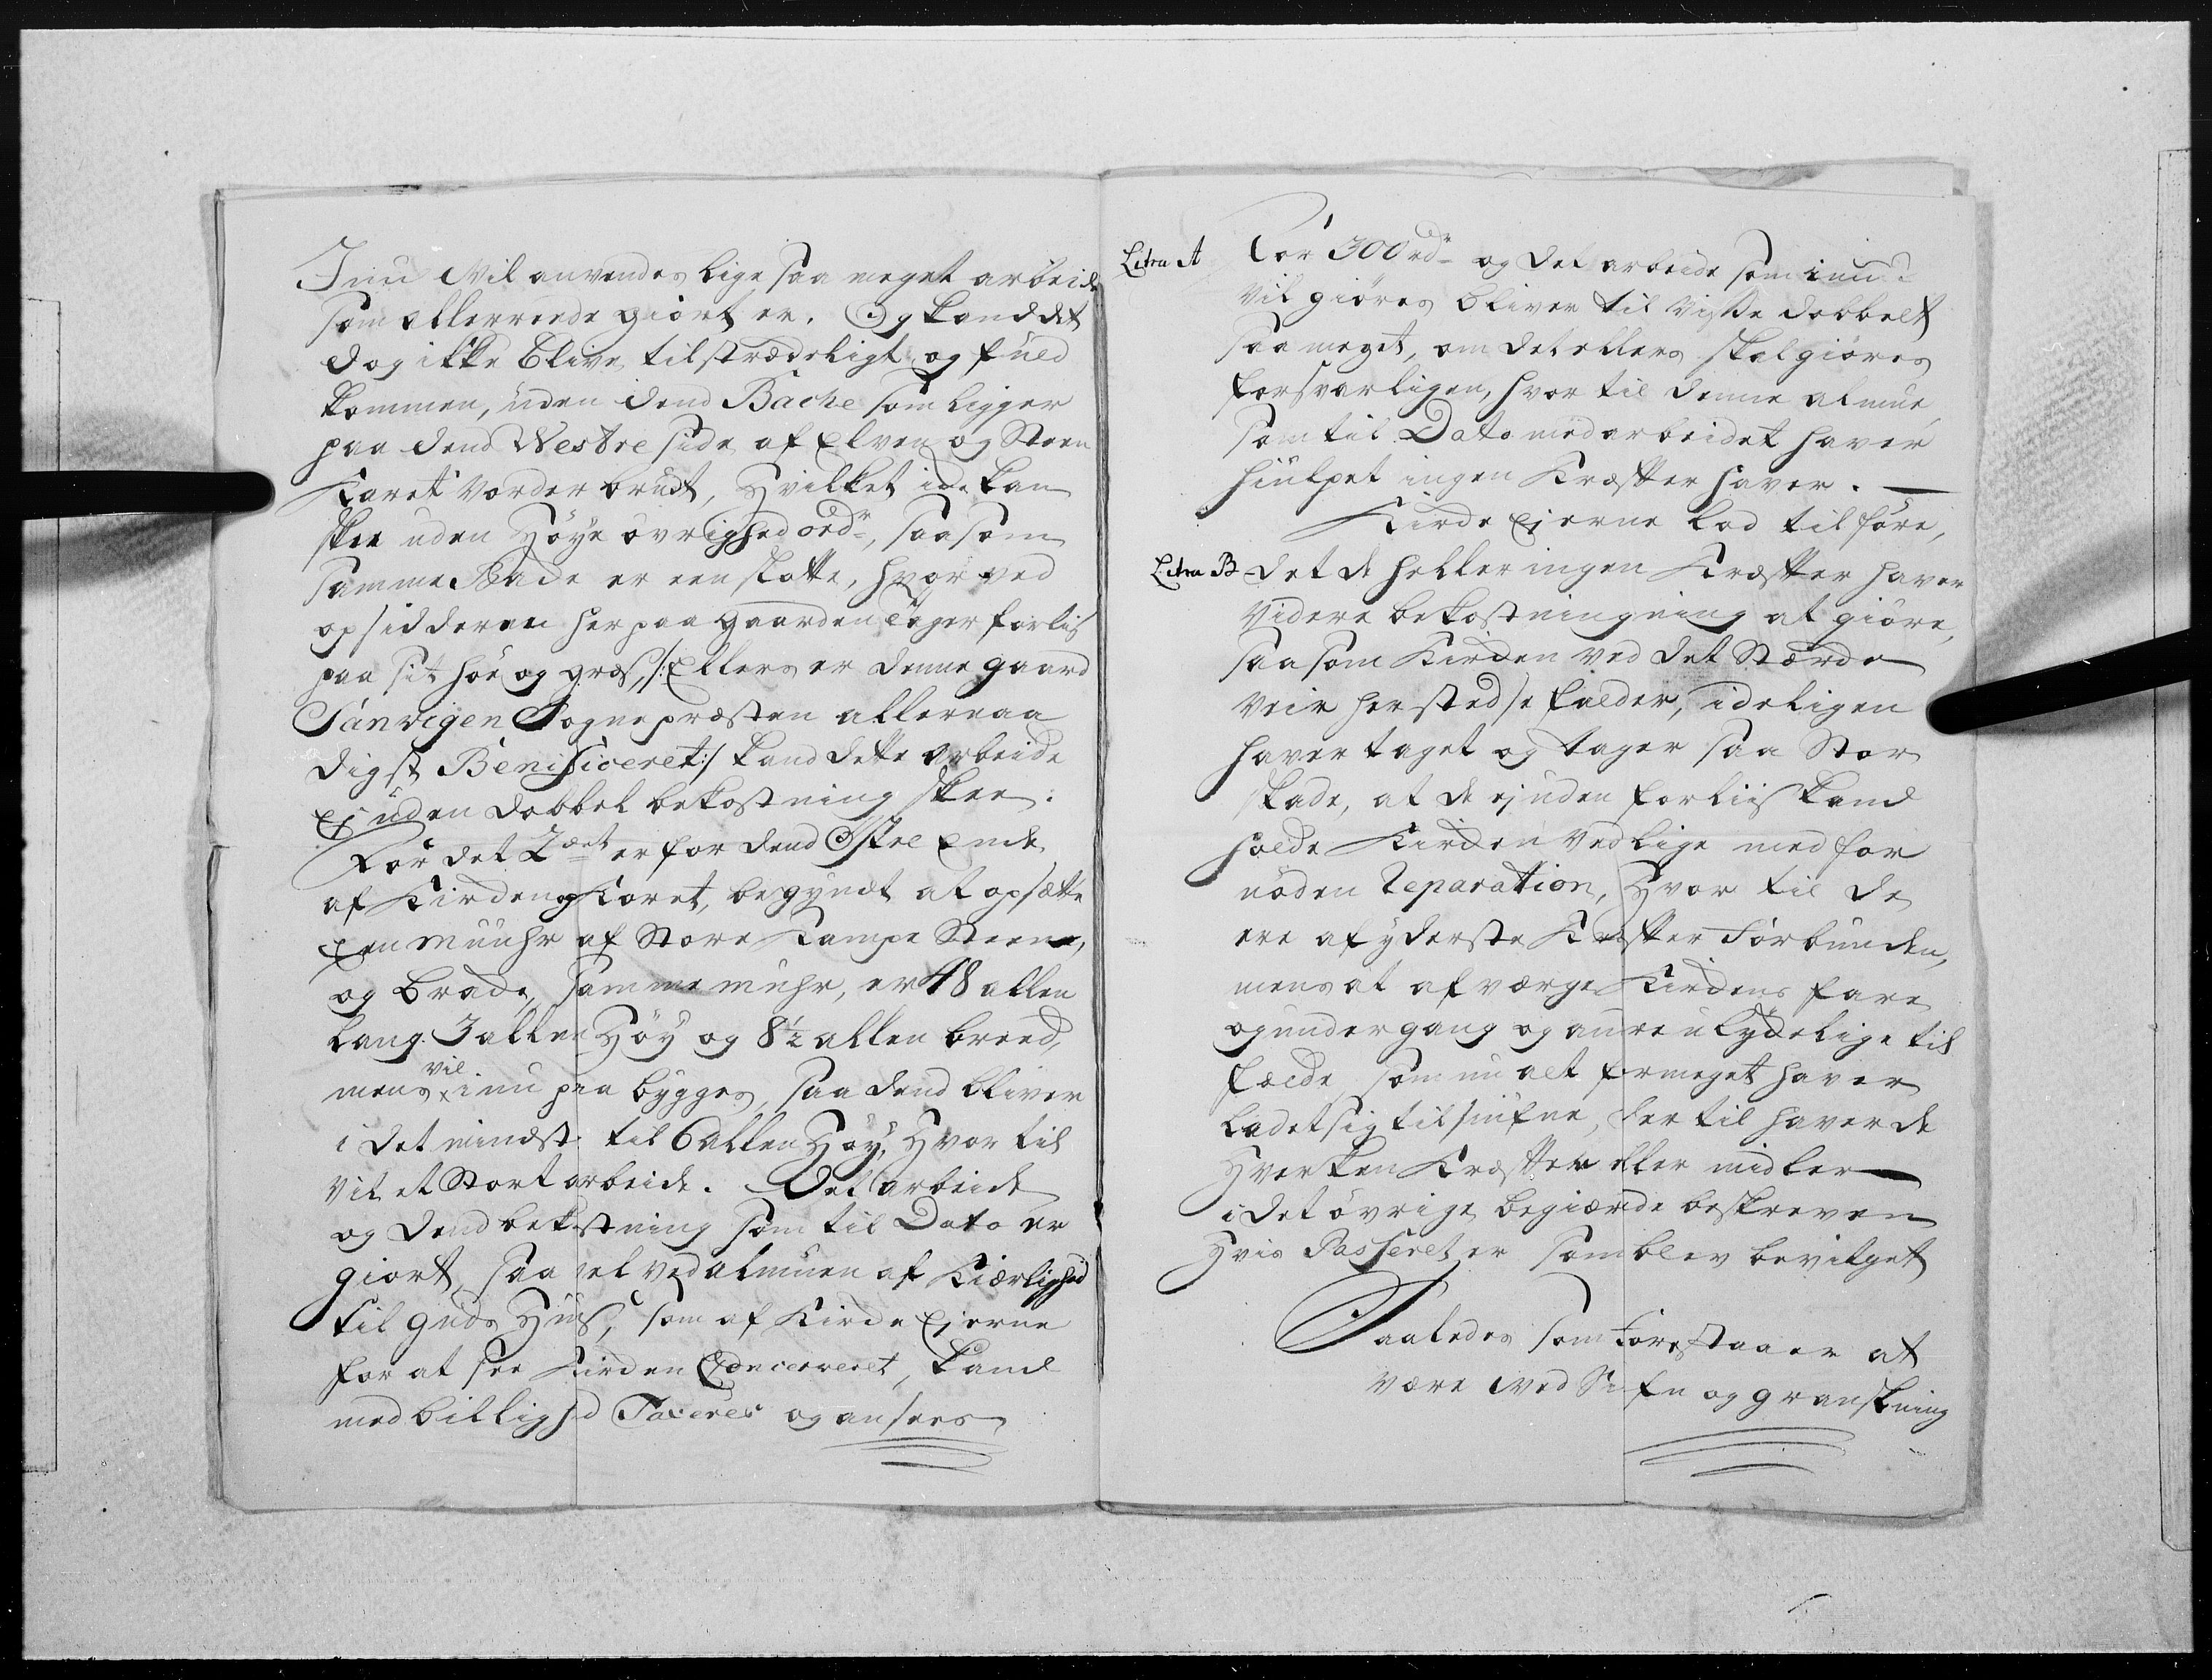 Jnu Vil anvendes lige saa meget arbeide
som allerreede giort er. Og kand det
dog ikke blive tilstrædeligt og fuld
kommen, uden dend Backe som ligger
paa dend Westre side af Elven og Steen
Karet vorder brudt, Hvilket icke kan
skee uden Høye øvrighed ordr, saasom
samme Backe er een slotte, hvor ved
opsidderen her paa gaarden tager forlis
paa sit høe og græs, /: Ellers er denne gaard
Sanvigen Sognepræsten allernaa
digst Benificeret :/ kand dette arbeide
Ej uden dobbel bekostning skee.
For det 2det er for dend Østre Ende
af Kirken og Koret, begyndt at opsætte
Een muuhr af Store Kampe Steene,
og brade, samme muhr, er 48 allen
lang 3 allen Høy og 8½ allen breed,
mens vil inu paa bygges, saa dend bliver
i det mindste til 6 allen Høy, Hvor til
vil et Stort arbeide. Det arbeide
og dend bekostning som til Dato er
giort, saa vel ved almuen af Kiærlighed
til Guds Huus, som af Kirke Ejerne
for at see Kirken Concerveret, kand
med billighed Taxeres og ansees
Litra A For 300 rdr og det arbeide som inu
vil giøres bliver til visse dobbelt
saa meget, om det ellers skal giøres
forsvarligen, hvor til denne almue
som til Dato med arbeidet haver
hiulpet ingen Kræfter haver.
Kirke Ejerne lod tilføre,
Litra B det de heller ingen Kræfter haver
videre bekostningning at giøre,
saasom Kirken ved det Stærke
veir her stedse falder, ideligen
haver taget og tager saa Stor
skade, at de ej uden forliis kand
holde Kirken ved lige med for
nøden Reparation, Hvor til de
ere af yderste Kræfter forbunden,
mens at afværge Kirkens fare
og undergang og andre ulydelige til
fælde, som nu alt formeget haver
ladet sig tilsiufne, her til haver de
Hverken Kræfter eller midler
i det øvrige begiærede beskreven
Hvis Passeret er som blev bevilget
Saaledes som forestaaer at
være ved Siufn og granskning